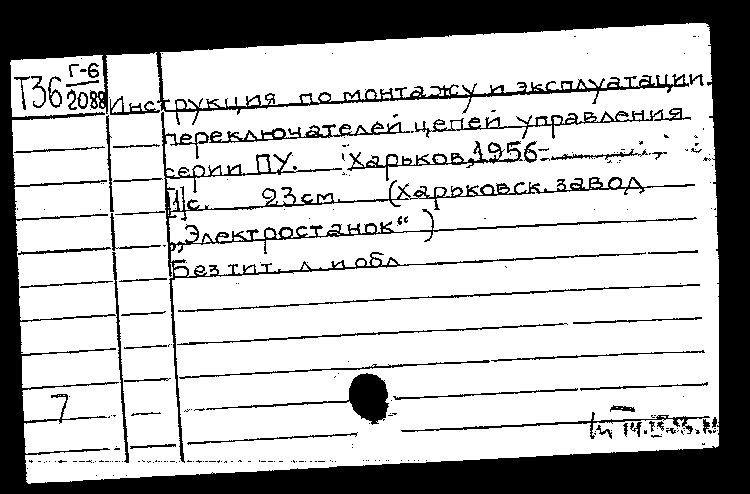 Т36 Г-6
2088
Инструкция по монтажу и эксплуатации
переключателей цепей управления
серии ПУ. Харьков, 1956
[1]с. 23см. (Харьковск. завод
„Электростанок“)
Без тит. л. и обл
7